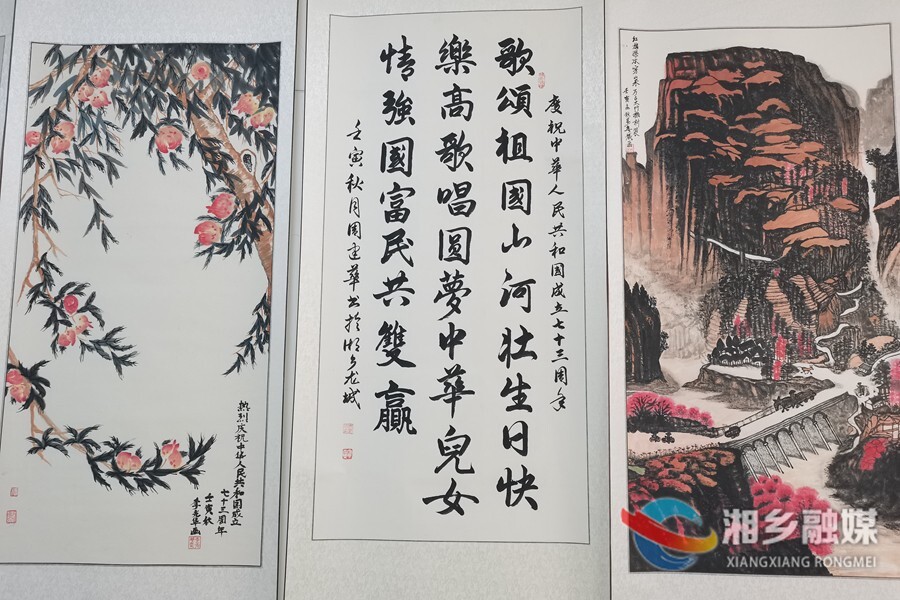 慶祝中华人民共和國成立七十三周年
歌頌祖國山河壮生日快
樂高歌唱圆夢中華兒女
情強國富民共雙贏
壬寅秋月周建華书於湘乡龙城
热烈庆祝中华人民共和國成立
七十三周年
壬寅秋
湘乡融媒
XIANGXIANG RONGMEI